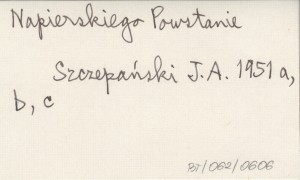 Napierskiego Powstanie
Szczepański J.A. 1951 a,
b, c
BJ/062/0606